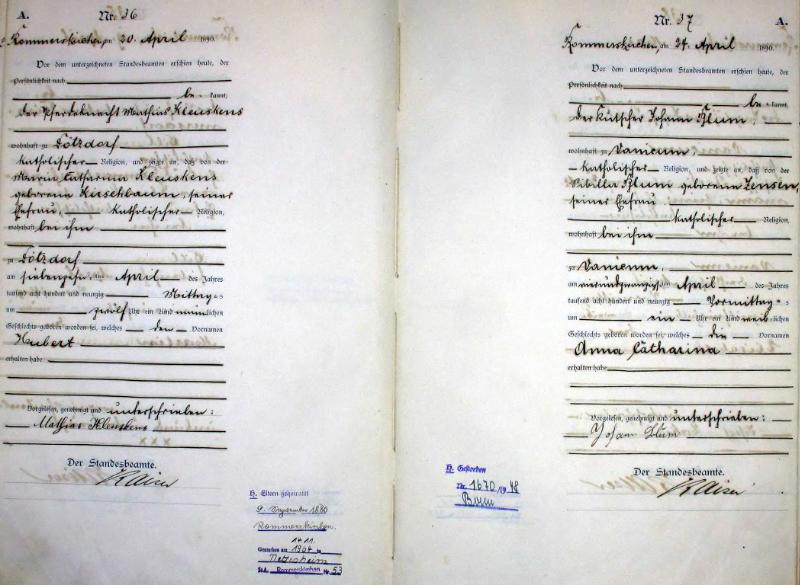 A. Nr. 36
Rommerskirchen, am 20. April 1890.
Vor dem unterzeichneten Standesbeamten erschien heute, der
Persönlichkeit nach
be- kannt,
der Pferdeknecht Mathias Kleuskens
wohnhaft zu Sötzdorf
katholischer Religion, und zeigte an, daß von der
Maria Catharina Kleuskens
geborene Kirschbaum, seiner
Ehefrau, katholischer Religion,
wohnhaft bei ihm
zu Sötzdorf
am siebenzehnten April des Jahres
tausend acht hundert und neunzig Mittags
um zwölf Uhr ein Kind männlichen
Geschlechts geboren worden sei, welches den Vornamen
Hubert
erhalten habe
Vorgelesen, genehmigt und unterschrieben:
Mathias Kleuskens
Der Standesbeamte.
Kaiser
H. Eltern geheiratet
1880
Rommerskirchen.
14.11.
Gestorben am 1964 in
Nettesheim
Sta. Rommerskirchen Nr 53
Nr. 37 A.
Rommerskirchen, am 24. April 1890.
Vor dem unterzeichneten Standesbeamten erschien heute, der
Persönlichkeit nach
be- kannt,
der Kutscher Johann Blum
wohnhaft zu Vanicum,
katholischer Religion, und zeigte an, daß von der
Sibilla Blum geborene Jensen,
seiner Ehefrau
katholischer Religion,
wohnhaft bei ihm
zu Vanicum,
am vierundzwanzigsten April des Jahres
tausend acht hundert und neunzig Vormittags
um ein Uhr ein Kind weiblichen
Geschlechts geboren worden sei, welches die Vornamen
Anna Catharina
erhalten habe
Vorgelesen, genehmigt und unterschrieben:
Johann Blum
Der Standesbeamte.
Kaiser
H. Gestorben
Nr. 1670/1978
Bonn